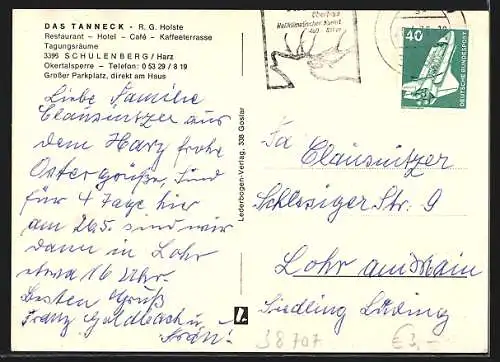 DAS TANNECK - R. G. Holste
Restaurant - Hotel - Café - Kaffeeterrasse
Tagungsräume
3396 SCHULENBERG / Harz
Okertalsperre - Telefon: 0 53 29 / 8 19
Großer Parkplatz, direkt am Haus
Liebe Familie
Clausnitzer aus
dem Harz frohe
Ostergrüße, Sind
für 4 Tage hier
am 26.5. sind wir
dann in Lohr
etwa 16 Uhr.
Besten Gruß
Franz Goldbach u.
Frau!
Lederbogen-Verlag, 338 Goslar
Heilklimatischer Kurort
40
DEUTSCHE BUNDESPOST
Fa
Clausnitzer
Schlesiger Str. 9
Lohr am Main
Siedling
38707
€3,-